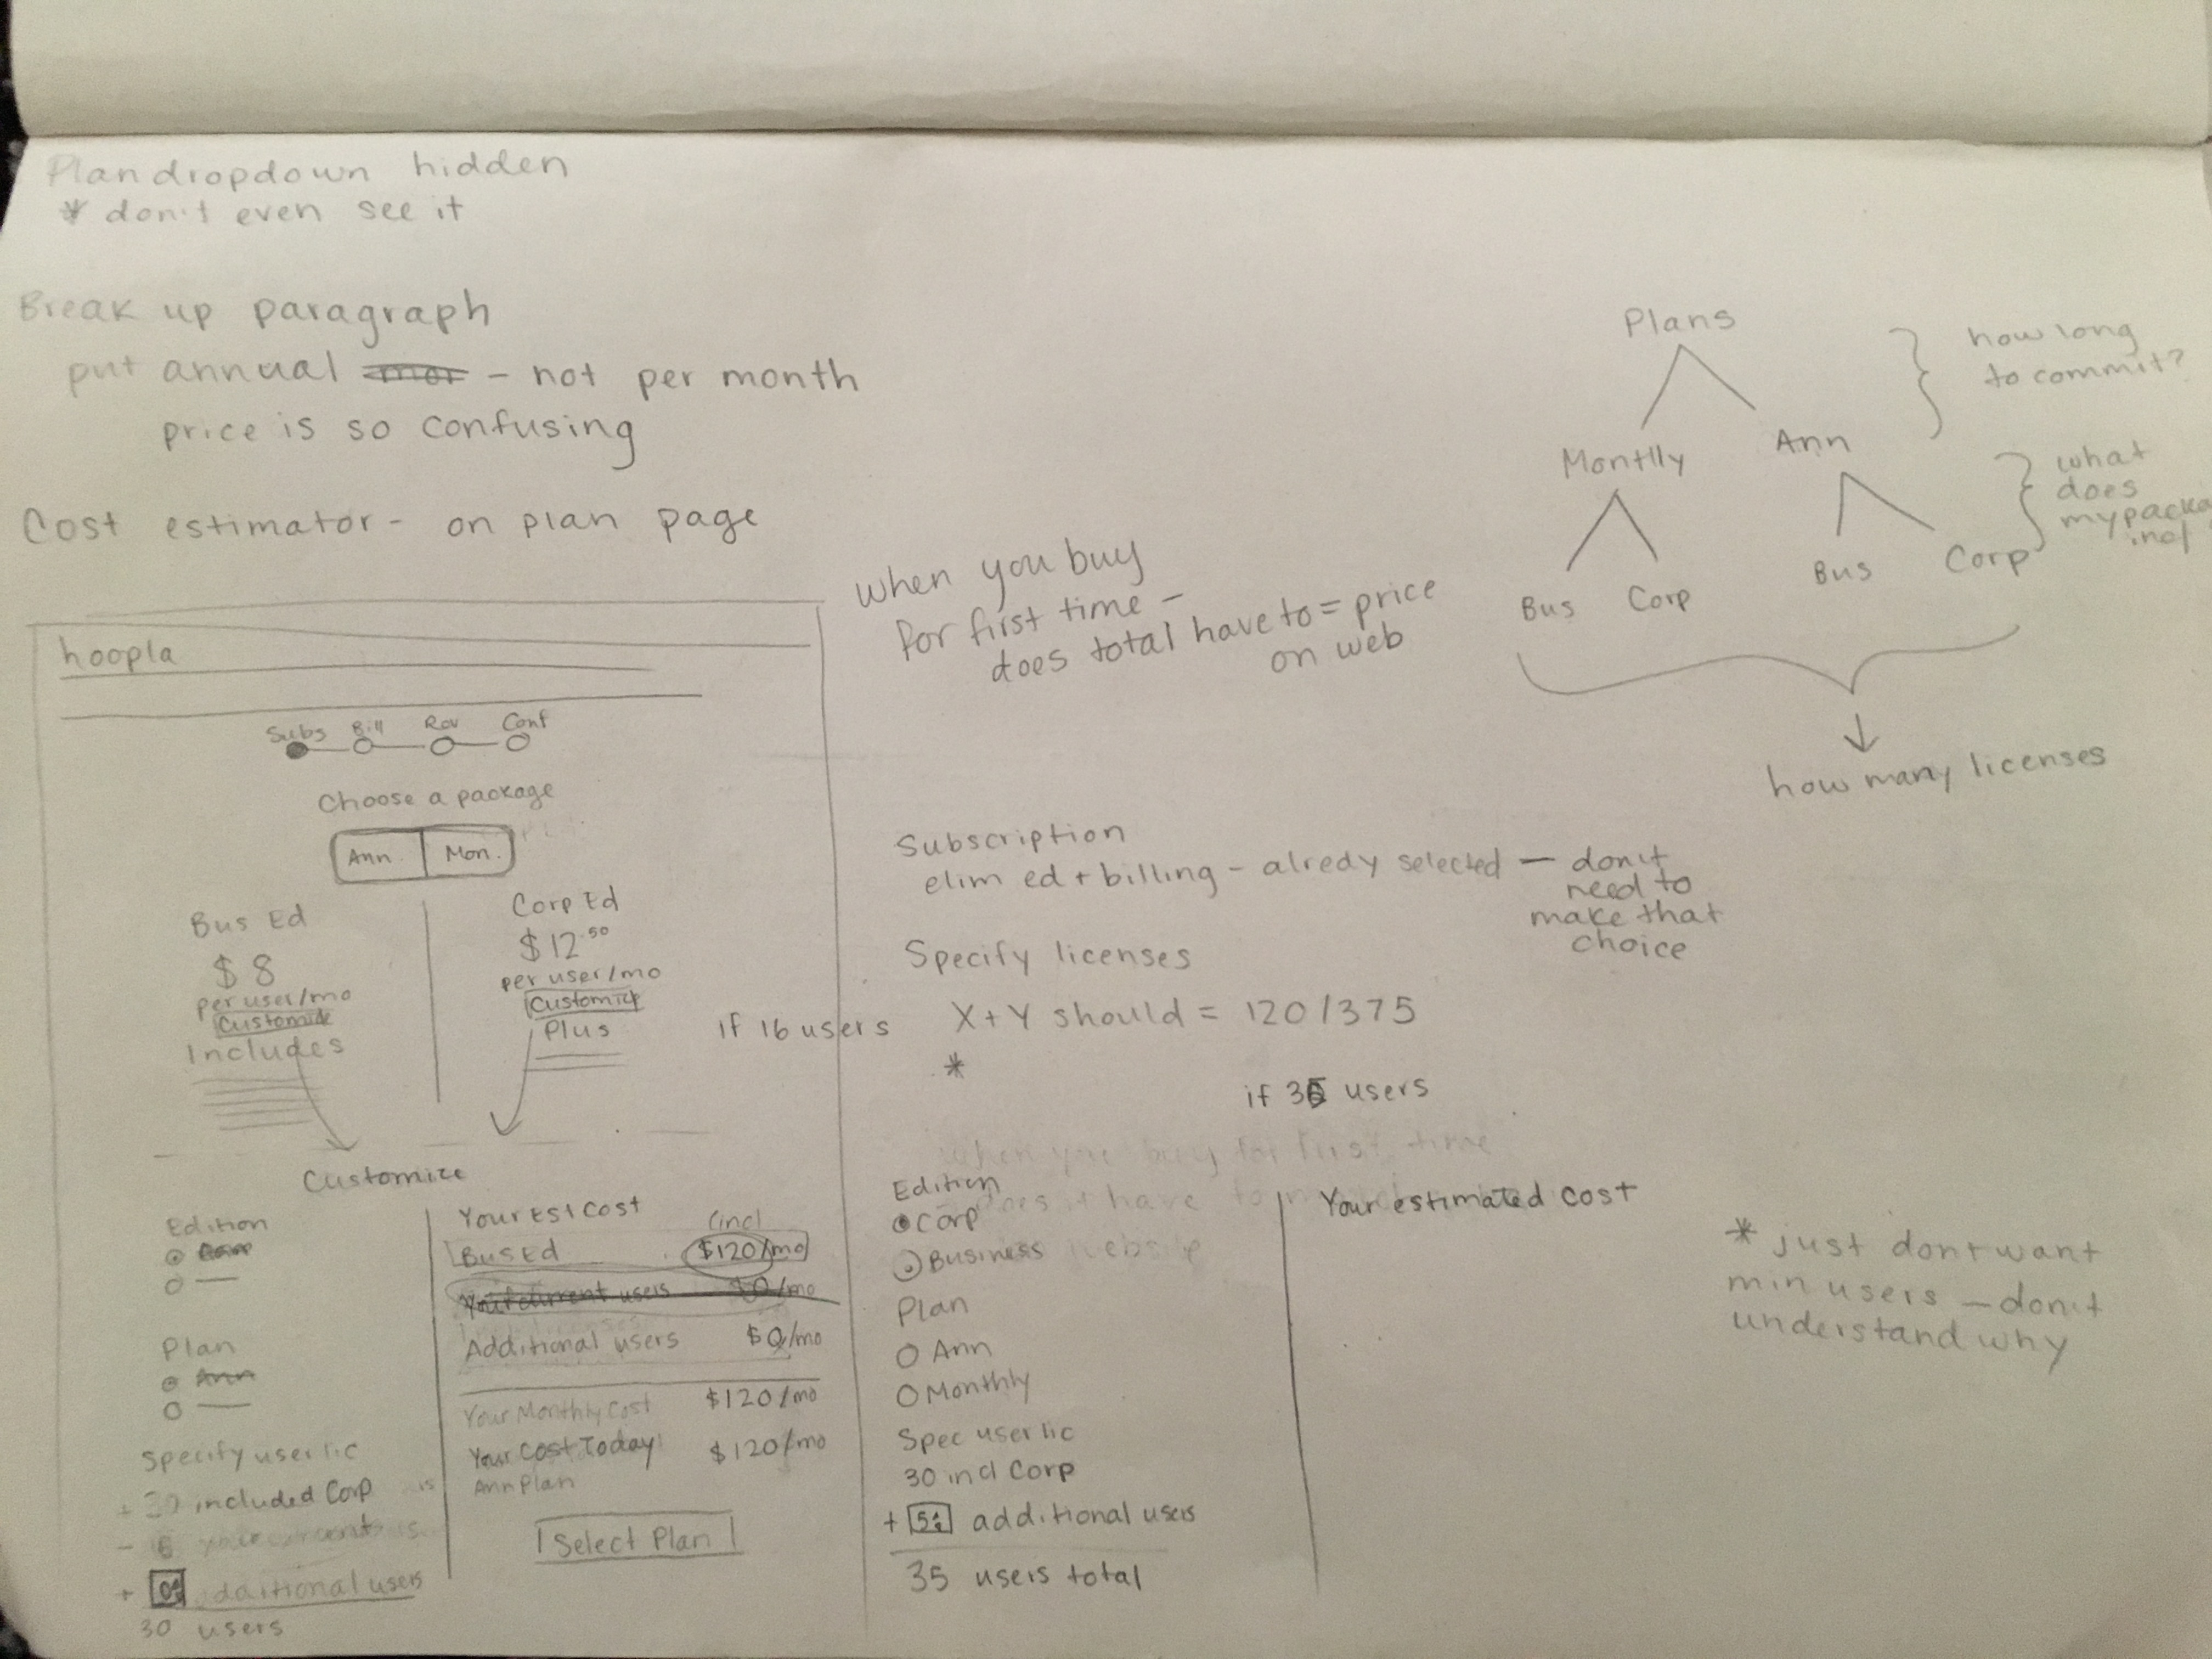 Plan dropdown hidden
* don't even see it
Break up paragraph
put annual - not per month
price is so confusing
Cost estimator - on plan page
hoopla
Subs Bill Rev Conf
Choose a package
Ann. Mon.
Bus Ed
$8
per user/mo
Customize
Includes
Corp D
$12.50
per user/mo
Customize
Plus
Customize
Edition
Plan
Ann
Specify user lic
+ 30 included Corp
- 6
+ 0 additional users
30 users
Your Est Cost
(incl
Bus Ed $120/mo
Your current users $0/mo
Additional users $0/mo
Your Monthly Cost $120/mo
Your Cost Today $120/mo
Ann Plan
Select Plan
when you buy
for first time -
does total have to = price
on web
Plans
Montlly Ann
Bus Corp
Bus Corp
how long
to commit?
what
does
my packa
incl
how many licenses
Subscription
elim ed + billing - alredy selected — don't
need to
make that
choice
Specify licenses
if 16 users X + Y should = 120/375
*
if 35 users
when you buy for first time
Edition
Corp
Business
Plan
Ann
Monthly
Spec user lic
30 incl Corp
+ 5 additional users
35 users total
Your estimated cost
* just dont want
min users — don't
understand why